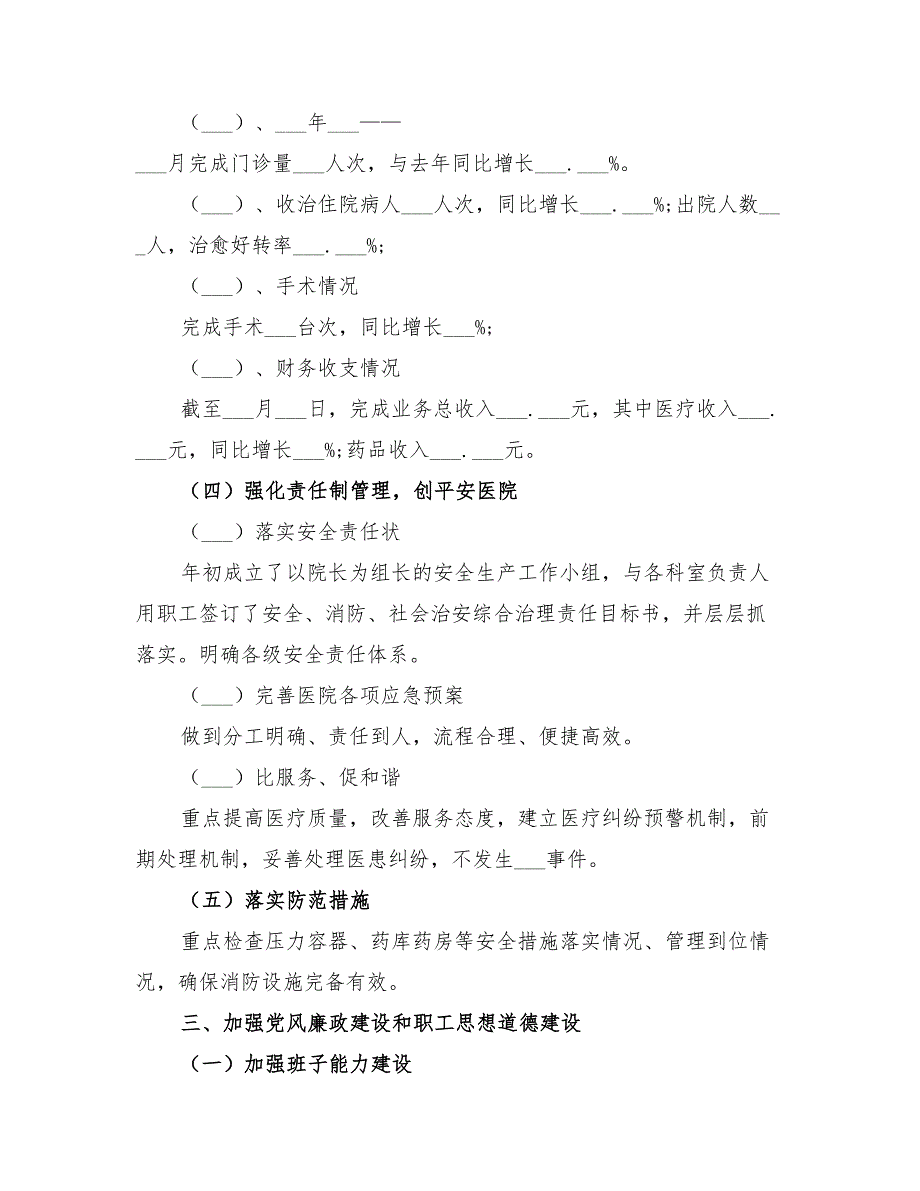 （___）、___年___——
___月完成门诊量___人次，与去年同比增长___.___%。
（___）、收治住院病人___人次，同比增长___.___%;出院人数__
_人，治愈好转率___.___%;
（___）、手术情况
完成手术___台次，同比增长___%;
（___）、财务收支情况
截至___月___日，完成业务总收入___.___元，其中医疗收入___.
___元，同比增长___%;药品收入___.___元。
（四）强化责任制管理，创平安医院
（___）落实安全责任状
年初成立了以院长为组长的安全生产工作小组，与各科室负责人
用职工签订了安全、消防、社会治安综合治理责任目标书，并层层抓
落实。明确各级安全责任体系。
（___）完善医院各项应急预案
做到分工明确、责任到人，流程合理、便捷高效。
（___）比服务、促和谐
重点提高医疗质量，改善服务态度，建立医疗纠纷预警机制，前
期处理机制，妥善处理医患纠纷，不发生___事件。
（五）落实防范措施
重点检查压力容器、药库药房等安全措施落实情况、管理到位情
况，确保消防设施完备有效。
三、加强党风廉政建设和职工思想道德建设
（一）加强班子能力建设